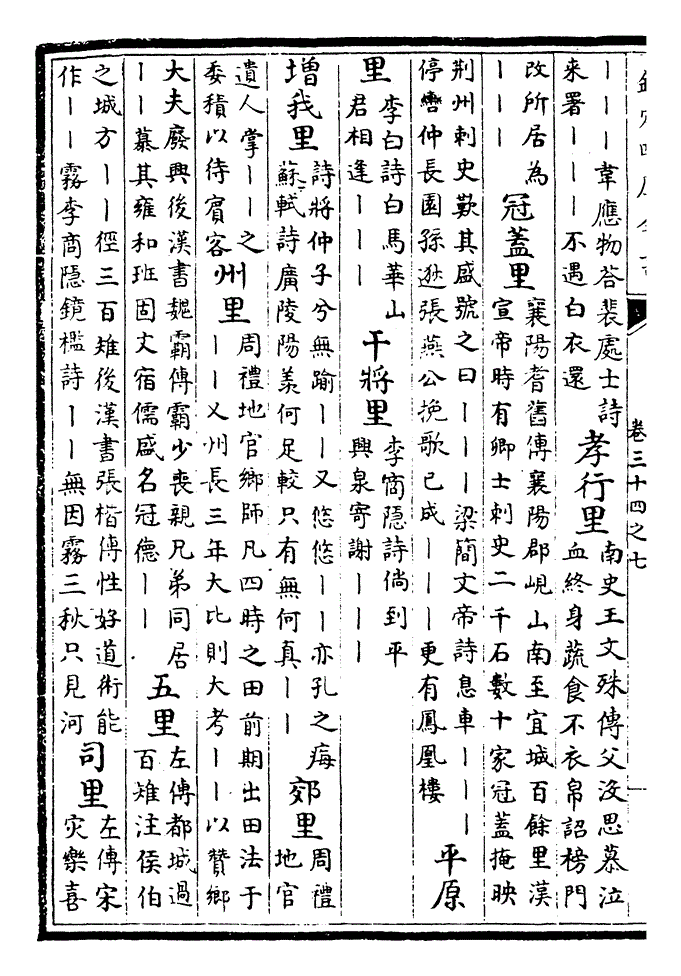 卷三十四之七
｜｜｜韋應物荅裴處士詩
來署｜｜｜不遇白衣還
孝行里
南史王文殊傳父沒思慕泣
血終身蔬食不衣帛詔榜門
改所居為
｜｜｜
冠蓋里
襄陽耆舊傳襄陽郡峴山南至宜城百餘里漢
宣帝時有卿士刺史二千石數十家冠蓋掩映
荆州刺史歎其盛號之曰｜｜｜梁簡文帝詩息車｜｜｜
停轡仲長園孫逖張燕公挽歌已成｜｜｜更有鳳凰樓
平原
里
李白詩白馬華山
君相逢｜｜｜
干將里
李商隱詩倘到平
興泉寄謝｜｜｜
增我里
詩將仲子兮無踰｜｜又悠悠｜｜亦孔之痗
蘇軾詩廣陵陽羡何足較只有無何真｜｜
郊里
周禮
地官
遺人掌｜｜之
委積以待賓客
州里
周禮地官鄉師凡四時之田前期出田法于
｜｜又州長三年大比則大考｜｜以贊鄉
大夫廢興後漢書魏霸傳霸少喪親兄弟同居
｜｜慕其雍和班固文宿儒盛名冠德｜｜
五里
左傳都城過
百雉注侯伯
之城方｜｜徑三百雉後漢書張楷傳性好道術能
作｜｜霧李商隱鏡檻詩｜｜無因霧三秋只見河
司里
左傳宋
灾樂喜